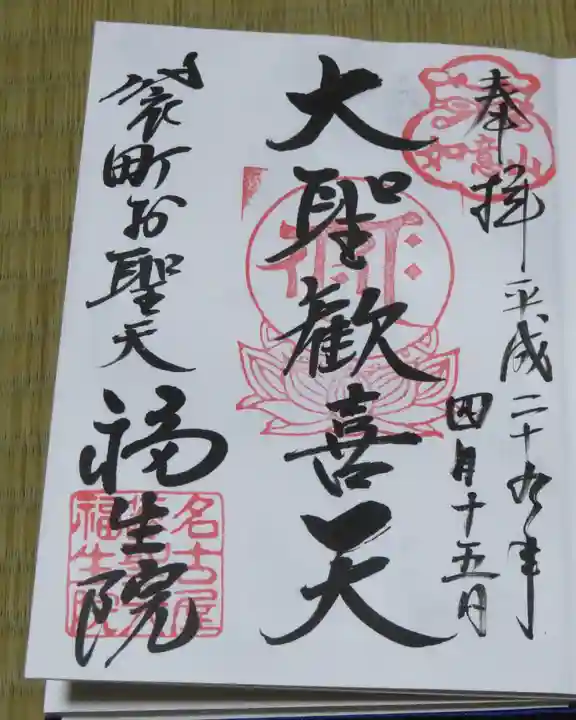 奉拝
如意山
平成二十九年
四月十五日
大聖歓喜天
袋町お聖天
福生院
名古屋
福生院